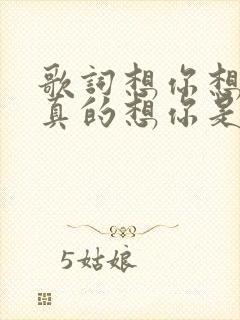 歌詞想你想
真的想你是
5姑娘